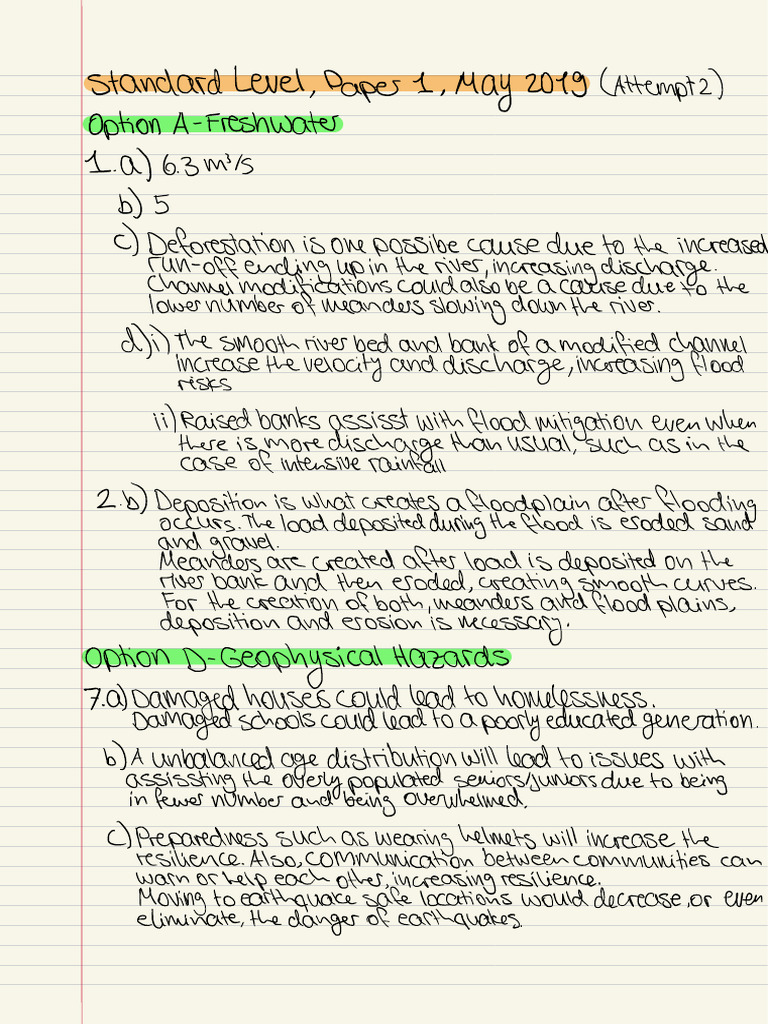 Standard Level, Paper 1, May 2019 (Attempt 2)
Option A-Freshwater
1.a) 6.3 m³/s
b) 5
c) Deforestation is one possibe cause due to the increased
run-off ending up in the river, increasing discharge.
Channel modifications could also be a cause due to the
lower number of meanders slowing down the river.
d)i) The smooth river bed and bank of a modified channel
increase the velocity and discharge, increasing flood
risks
ii) Raised banks assisst with flood mitigation even when
there is more discharge than usual, such as in the
case of intensive rainfall
2.b) Deposition is what creates a floodplain after flooding
occurs. The load deposited during the flood is eroded sand
and gravel.
Meanders are created after load is deposited on the
river bank and then eroded, creating smooth curves.
For the creation of both, meanders and flood plains,
deposition and erosion is necessary.
Option D-Geophysical Hazards
7.a) Damaged houses could lead to homelessness.
Damaged schools could lead to a poorly educated generation.
b) A unbalanced age distribution will lead to issues with
assissting the overly populated seniors/juniors due to being
in fewer number and being overwhelmed.
c) Preparedness such as wearing helmets will increase the
resilience. Also, communication between communities can
warn or help each other, increasing resilience.
Moving to earthquace safe locations would decrease, or even
eliminate, the danger of earthquakes.